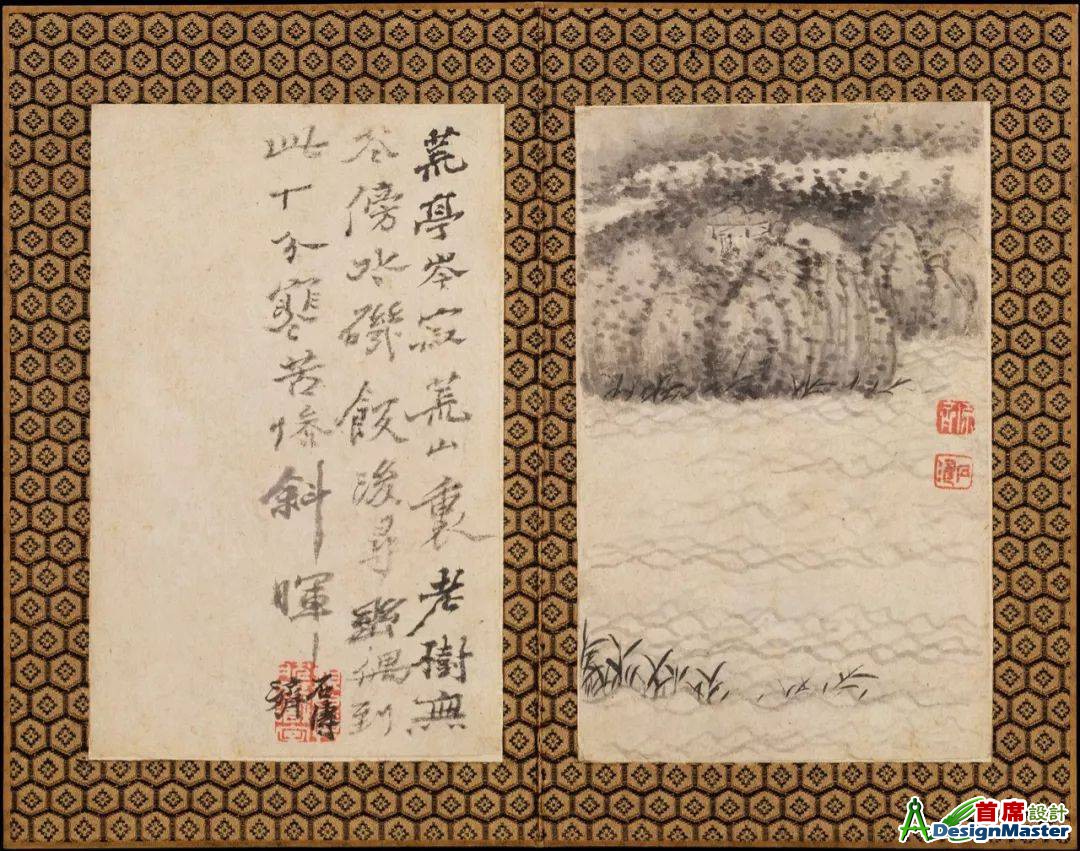 荒亭岑寂荒山裏老樹無
花傍水磯飯後尋幽偶到
此十分寒苦惨斜暉
石濤
濟
石濤
首席設計
DesignMaster